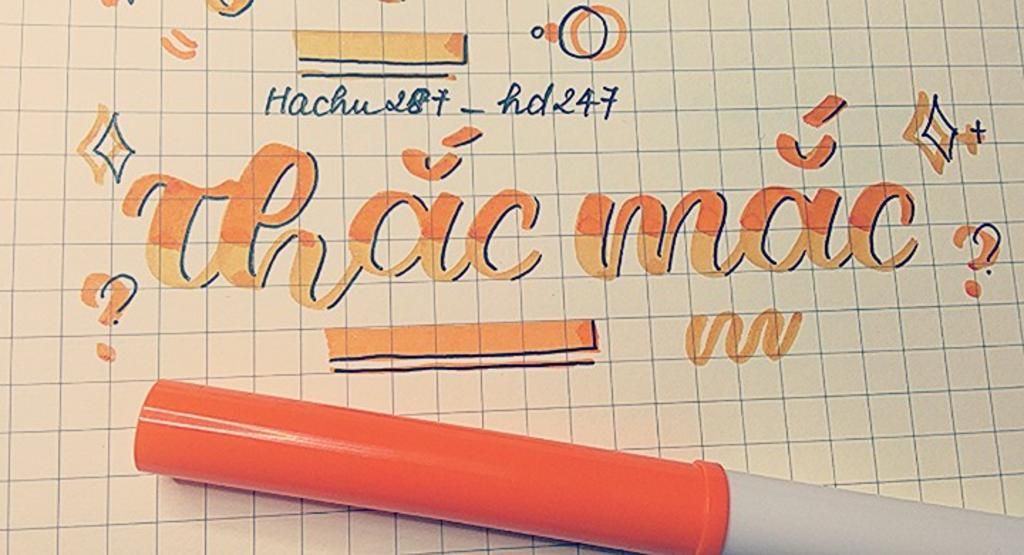 Hachu287 - hd247
thắc mắc
? ?